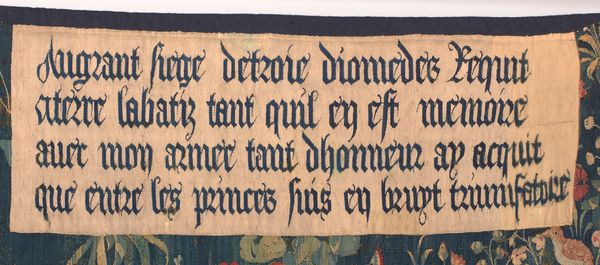 Au grant siege de troie diomedes Requit
A terre labatiz tant quil en est memoire
auec mon armee tant dhonneur ay acquit
que entre les princes suis en bruyt triumfatoire